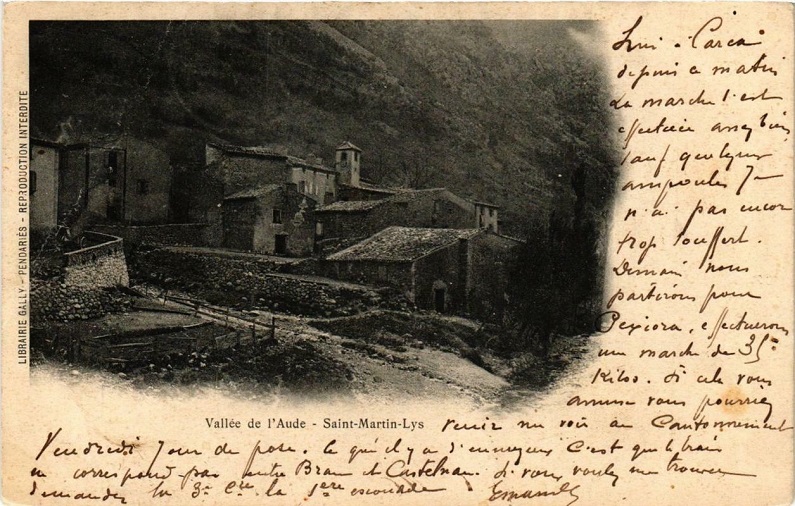 LIBRAIRIE GALLY - PENDARIÈS - REPRODUCTION INTERDITE
Vallée de l'Aude - Saint-Martin-Lys
Suis à Carca
depuis ce matin
La marche s'est
effectuée assez bien
sauf quelques
ampoules Je
n'ai pas encor
trop souffert.
Demain nous
partirons pour
Pexiora, effectuerons
une marche de 35
Kilos. Si cela vous
amuse vous pourriez
venir me voir au Cantonnement
Vendredi Jour de pose. Ce qu'il y a d'ennuyeux C'est que le train
ne correspond pas entre Bram et Castelnau. Si vous voulez me trouver
demander la 3e Cie la 1ere escouade